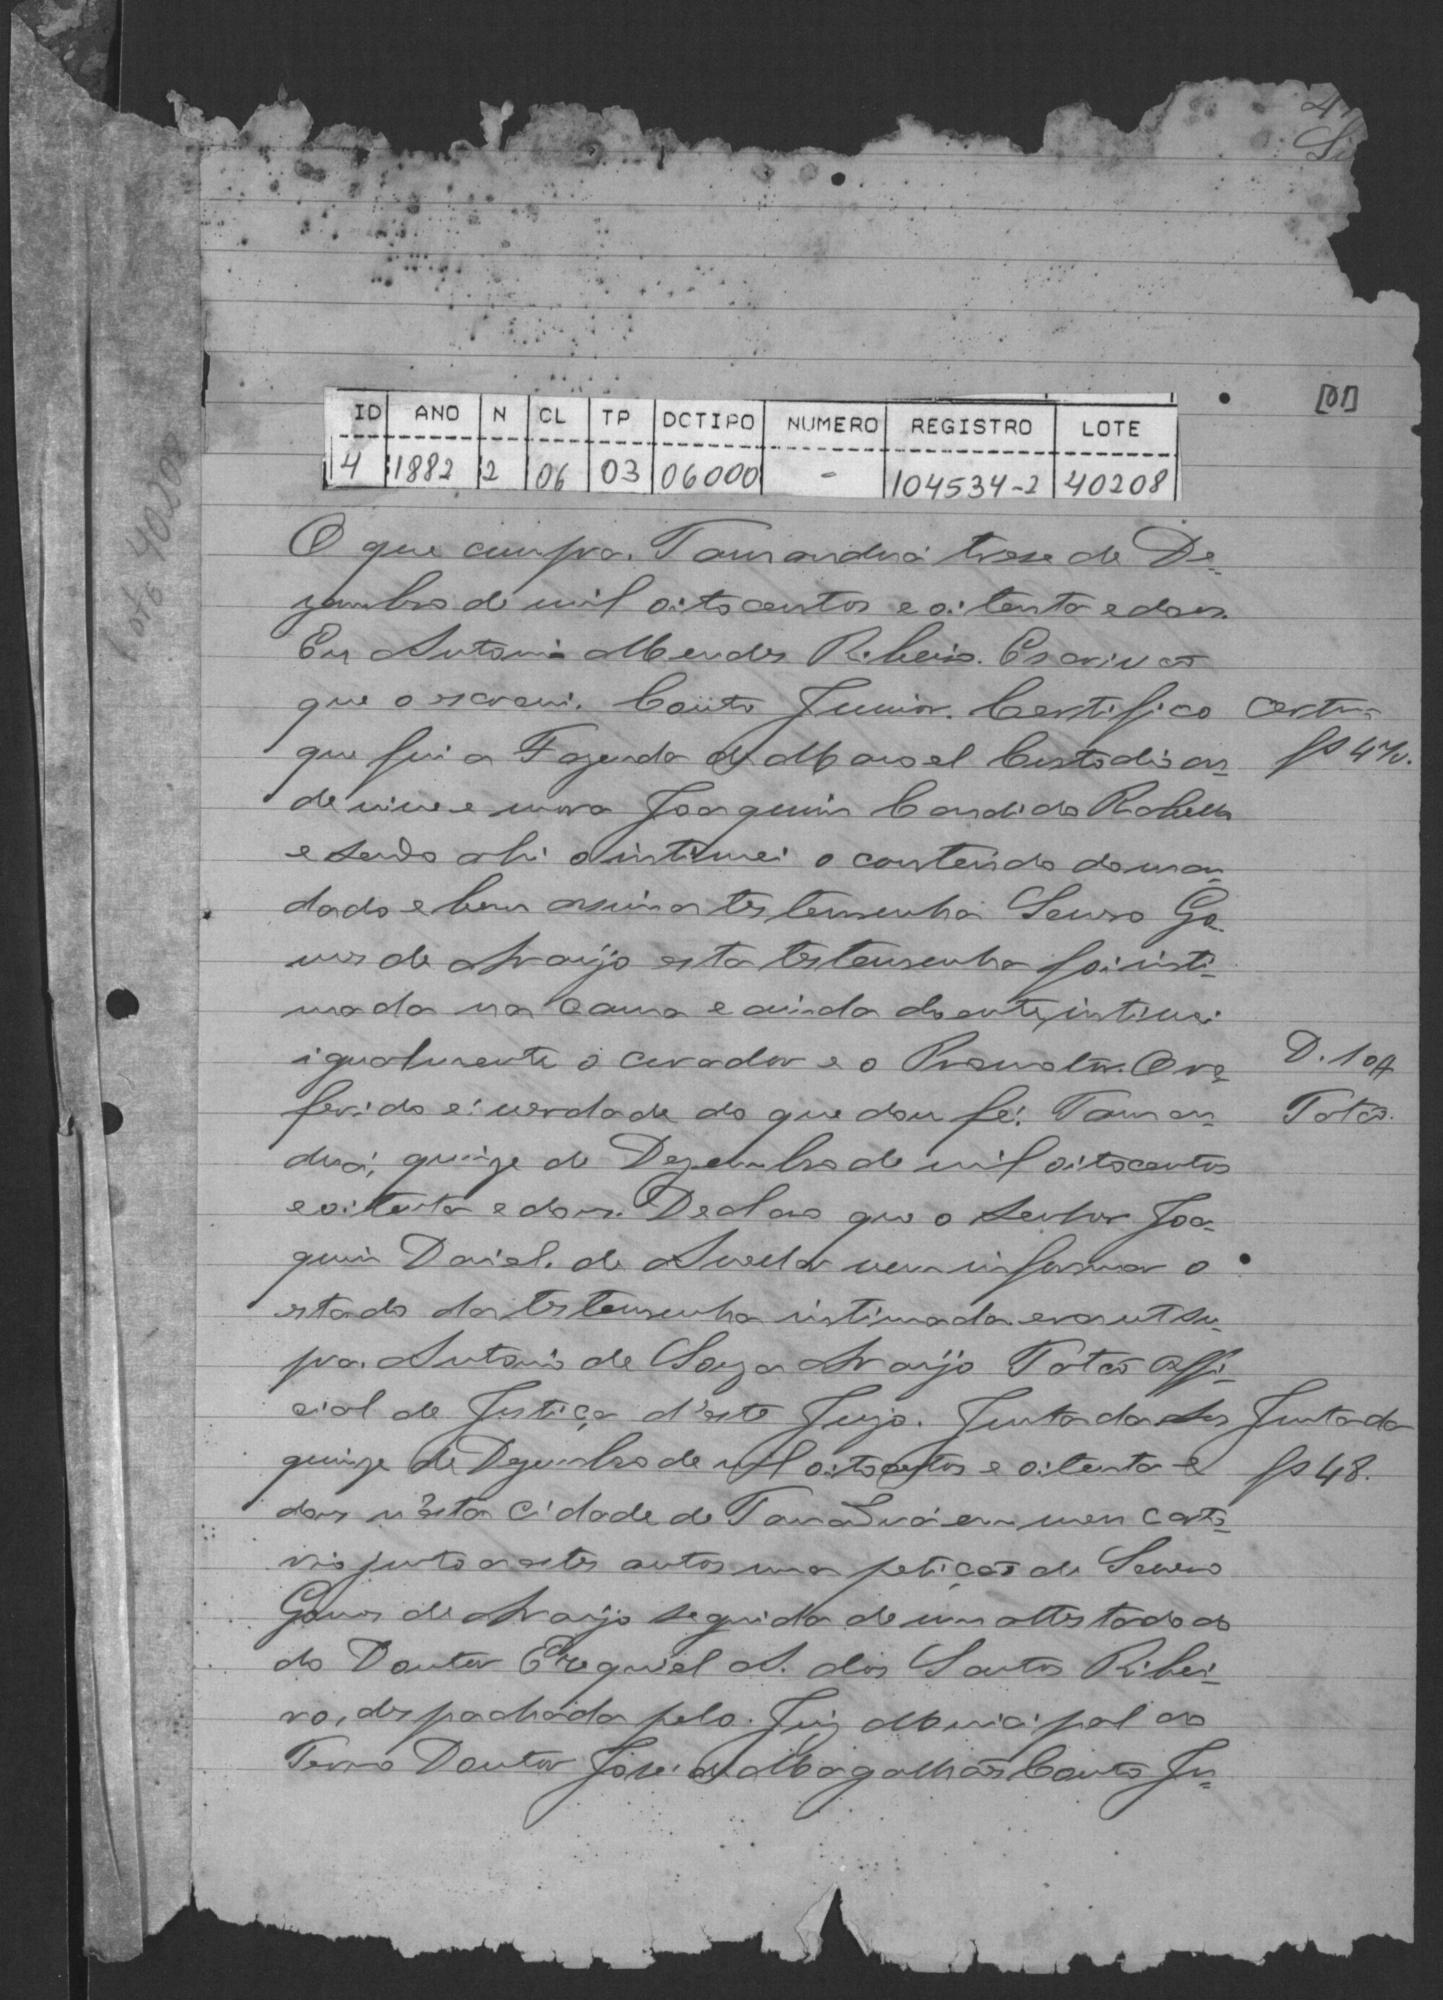 [01]
ID ANO N CL TP DCTIPO NUMERO REGISTRO LOTE
4 1882 2 06 03 06000 - 104534-2 40208
Lote 40208
O que cumpra. Tamanduá treze de De-
zembro de mil oitocentos e oitenta e dous.
Eu Antonio Mendes Ribeiro. Escrivão
que o escrevi. Couto Junior. Certifico
que fui a Fazenda de Manoel Custodio on-
de vive e mora Joaquim Candido Rabello
e sendo ahi o intimei o conteúdo do man-
dado e bem assim a testemunha Severo Go-
mes de Araujo esta testemunha foi inti-
mada na cama e ainda doente, intimei
igualmente o curador e o Promotor. O re-
ferido é verdade do que dou fé. Taman-
duá, quinze de Dezembro de mil oitocentos
e oitenta e dous. Declaro que o senhor Joa-
quim Daniel de vem informar o
estado da testemunha intimada era ut su-
pra. Antonio de Souza Araujo Totão Offi-
cial de Justiça d'este Juizo. Juntada Aos
quinze de Dezembro de mil oitocentos e oitenta e
dous n'esta cidade de Tamanduá em meu carto-
rio junto a estes autos uma petição de Severo
Gomes de Araujo seguida de um attestado do
do Doutor Ezequiel A. dos Santos Ribei-
ro, despachada pelo Juiz Municipal do
Termo Doutor José de Magalhães Couto Ju-
Certam
fs 47v.
D. 10#
Totão.
Juntada
fs 48.